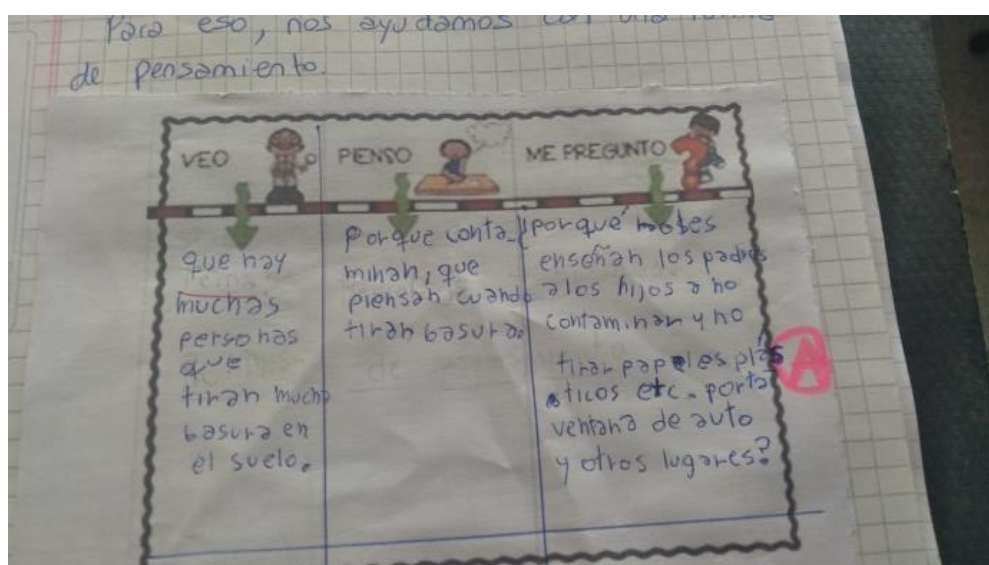 Para eso, nos ayudamos con una rutina
de pensamiento.
VEO
que hay
muchas
personas
que
tiran mucha
basura en
el suelo.
PIENSO
Porque conta-
minan, que
piensan cuando
tiran basura.
ME PREGUNTO
¿porqué no les
enseñan los padres
a los hijos a no
contaminar y no
tirar papeles plás
ticos etc. por la
ventana de auto
y otros lugares?
A